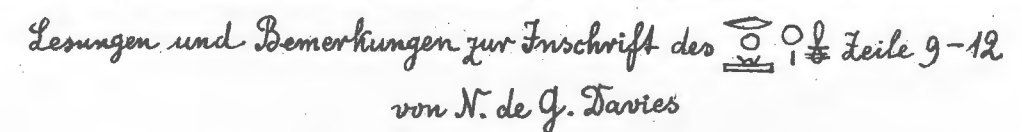 Lesungen und Bemerkungen zur Inschrift des Zeile 9-12
von N. de G. Davies